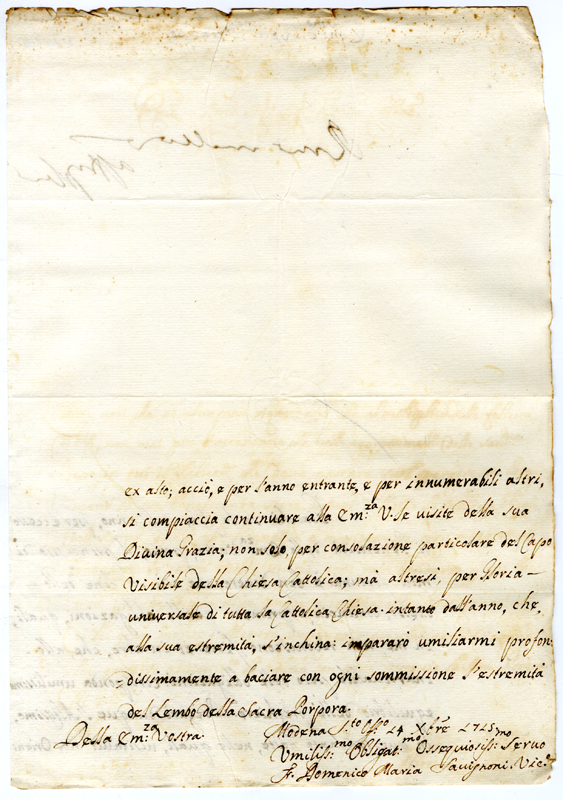 ex alto; acciò, e per l'anno entrante, e per innumerabili altri,
si compiaccia continuare alla Em:za V. le visite della sua
Divina Grazia; non solo, per consolazione particolare del Capo
Visibile della Chiesa Cattolica; mà altresi, per Gloria
universale di tutta la Cattolica Chiesa. intanto dall'anno, che,
alla sua estremità, s'inchina: impararò umiliarmi profon:
dissimamente a baciare con ogni sommissione l'estremità
del Lembo della Sacra Porpora.
Della Em:za Vostra.
Modena S.to 24 Xbre 1725
Umilis:mo Obligat:mo Ossequiosis:mo Servo
F. Domenico Maria Savignoni. Vic.o